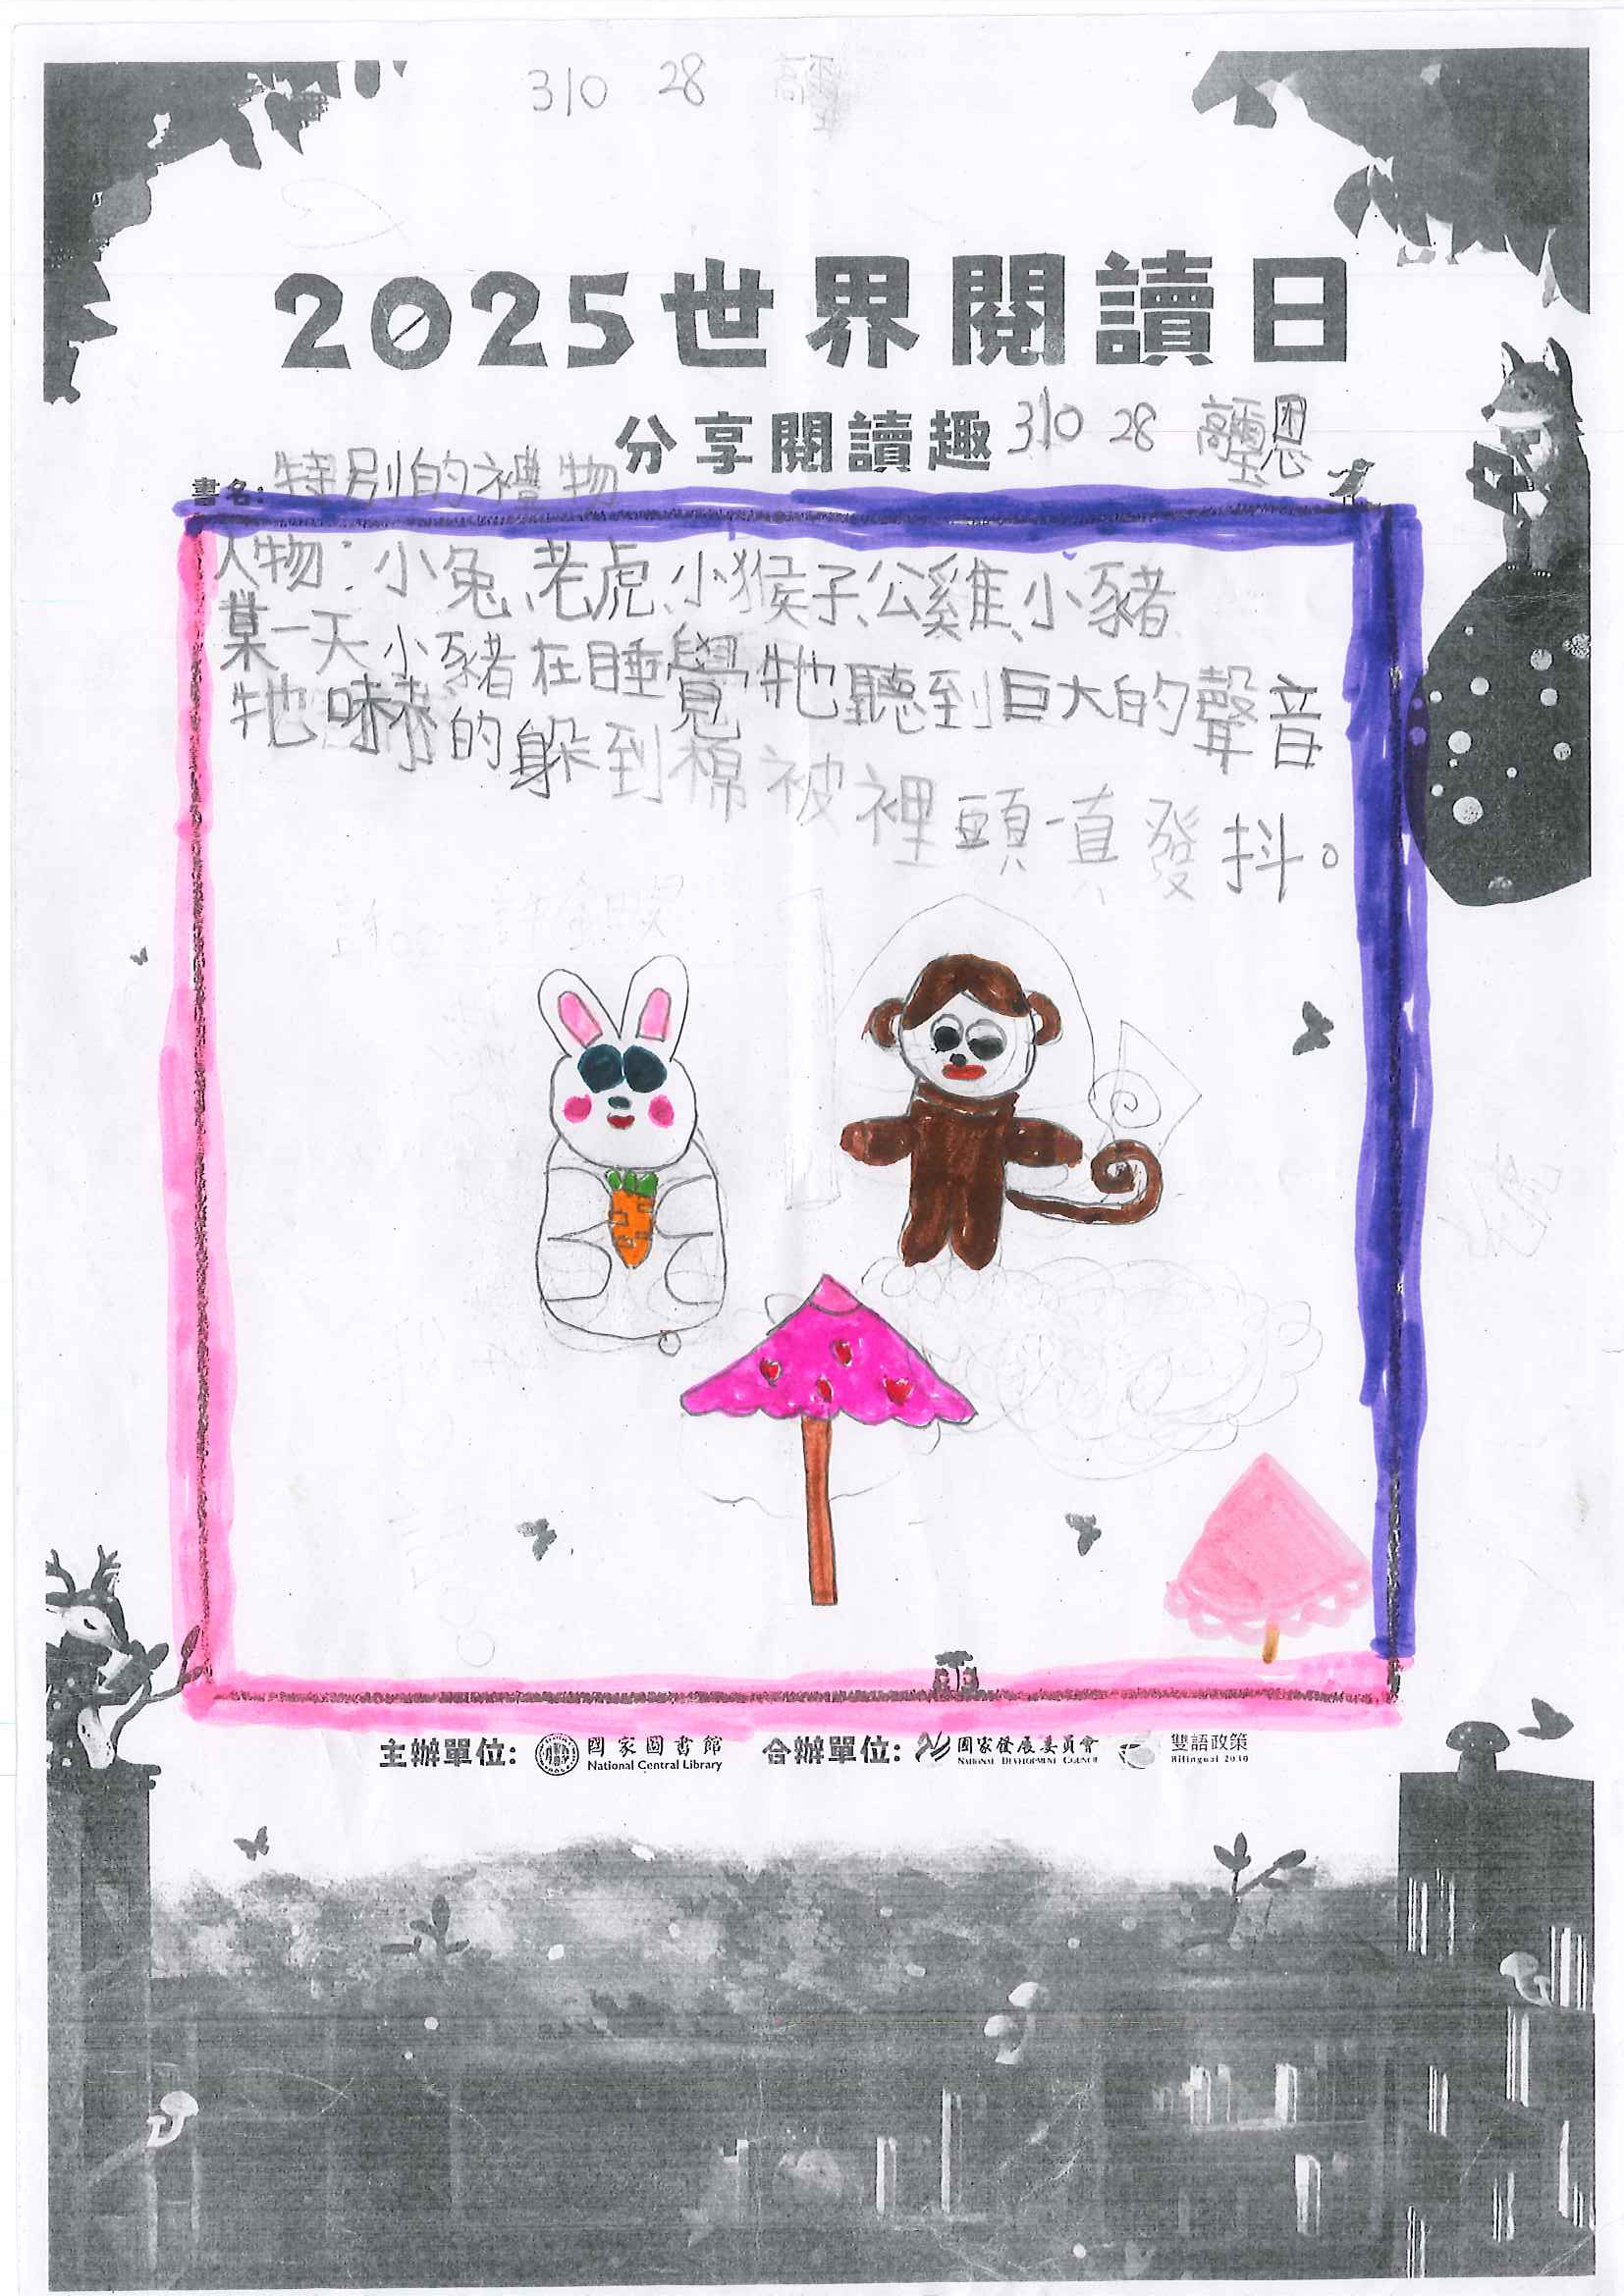 310 28 高
2025世界閱讀日
分享閱讀趣 310 28 高聖恩
書名: 特別的禮物
人物:小兔、老虎、小猴子、公雞、小豬
某一天小豬在睡覺牠聽到巨大的聲音
牠嚇的躲到棉被裡頭直發抖。
主辦單位: 國家圖書館 National Central Library 合辦單位: 國家發展委員會 NATIONAL DEVELOPMENT COUNCIL 雙語政策 Bilingual 2030